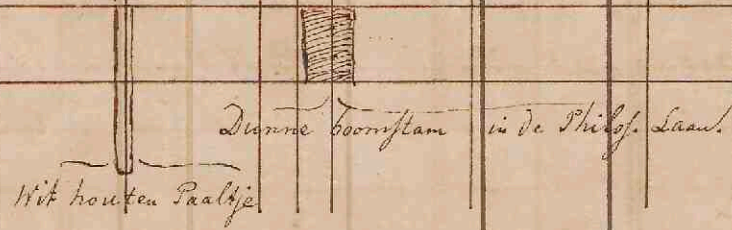 Dunne boomstam in de Philos. Laan.
Wit houten Paaltje